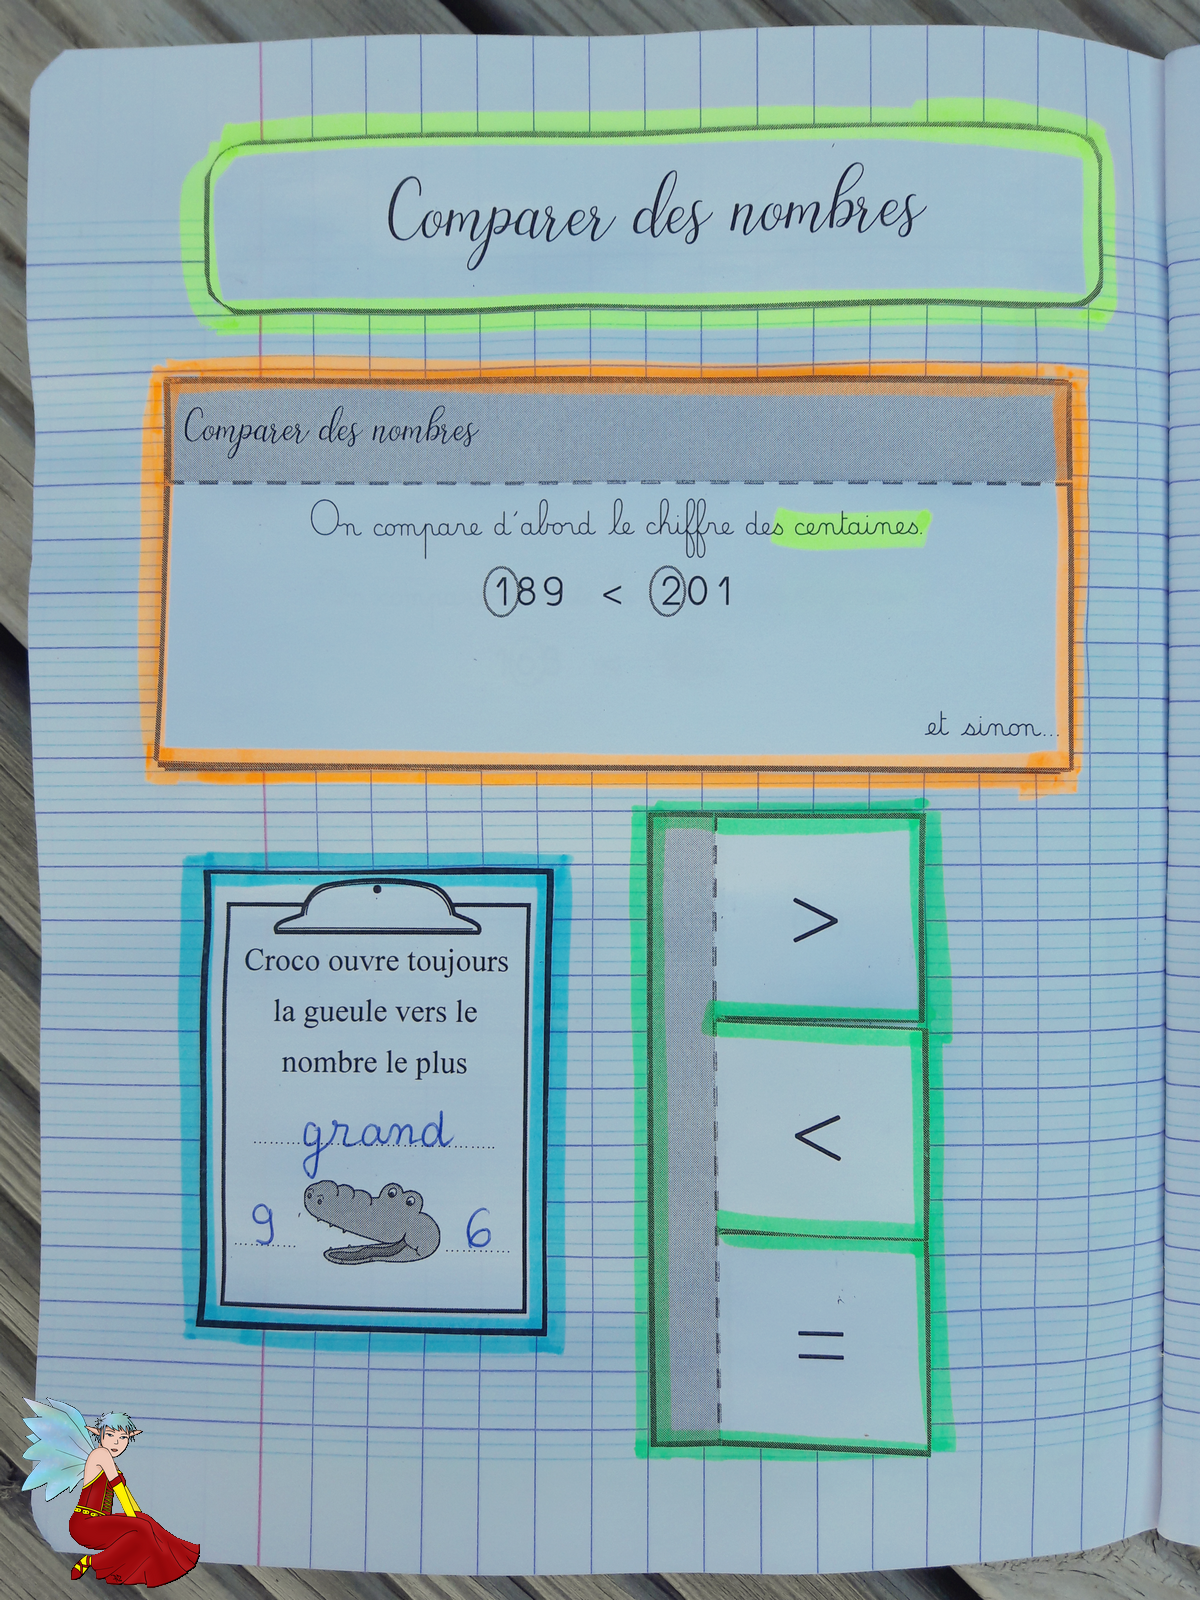 Comparer des nombres
Comparer des nombres
On compare d'abord le chiffre des centaines.
189 < 201
et sinon...
Croco ouvre toujours
la gueule vers le
nombre le plus
grand
9 6
>
<
=